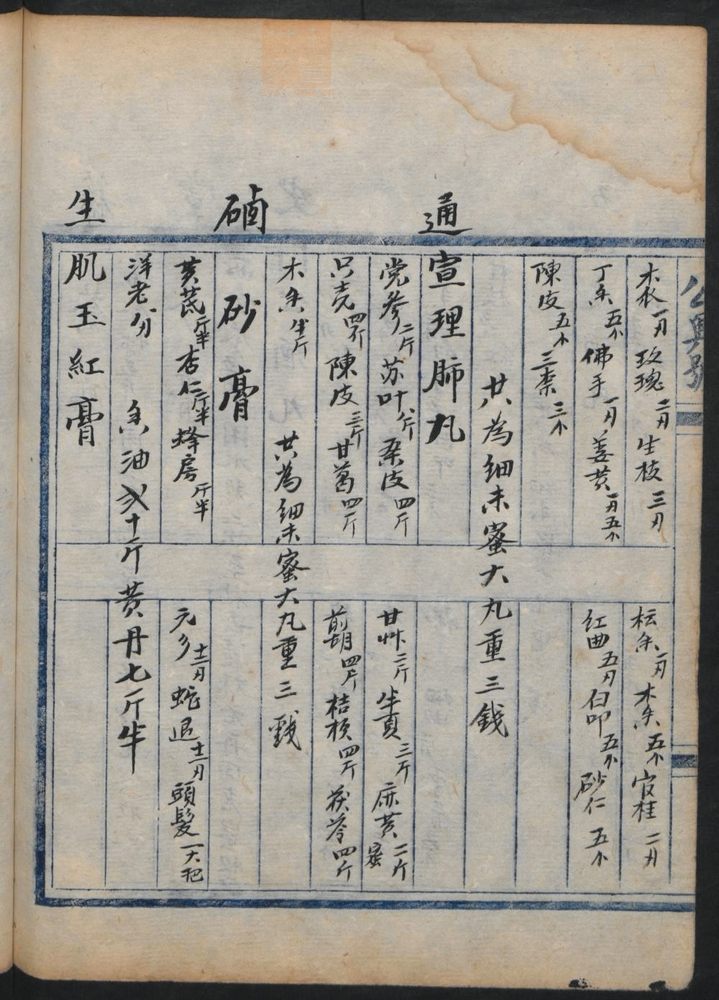 公興號
木香 玫瑰 二刄 生枝 三刄
枟香 一刄 木香 五小 官桂 二刄
丁香 五小 佛手 一刄 姜黄 一刄五小
紅曲 五刄 白叩 五小 砂仁 五小
陳皮 五小 三柰 三小
共為細末蜜大丸重三錢
通宣理肺丸
党參 二斤 苏叶 八斤 桑皮 四斤
甘艸 二斤 半夏 三斤 麻黄 二斤 蜜
只壳 四斤 陳皮 三斤 甘葛 四斤
前胡 四斤 桔梗 四斤 茯苓 四斤
木香 半斤
共為細末蜜大丸重三戥
硇砂膏
黄芪 斤半 杏仁 斤半 蜂房 斤半
元参 十二刄 蛇退 十二刄 頭髮 一大把
香油 弍十斤 黄丹七斤半
生肌玉紅膏